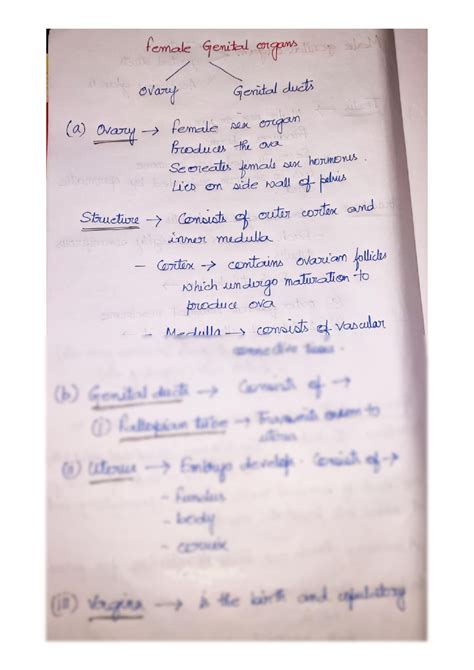 Female Genital organs
Ovary Genital ducts
(a) Ovary → Female sex organ
Produces the ova
Secreates female sex hormones.
Lies on side wall of pelvis
Structure → Consists of outer cortex and
inner medulla
- Cortex → contains ovarian follicles
which undergo maturation to
produce ova
- Medulla → consists of vascular
connective tissue.
(b) Genital ducts → Consists of →
(i) Fallopian tube → Transmits ovum to
uterus
(ii) Uterus → Embryo develop. Consist of →
- fundus
- body
- cervix
(iii) Vargina → is the birth and